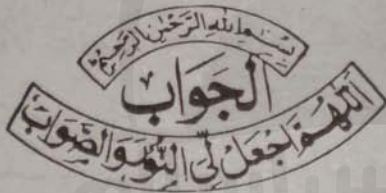 بِسْمِ اللهِ الرَّحْمٰنِ الرَّحِيْمِ
الجَوَابُ
اَللّٰهُمَّ اجْعَلْ لِّيْ النُّوْرَ وَالصَّوَابَ